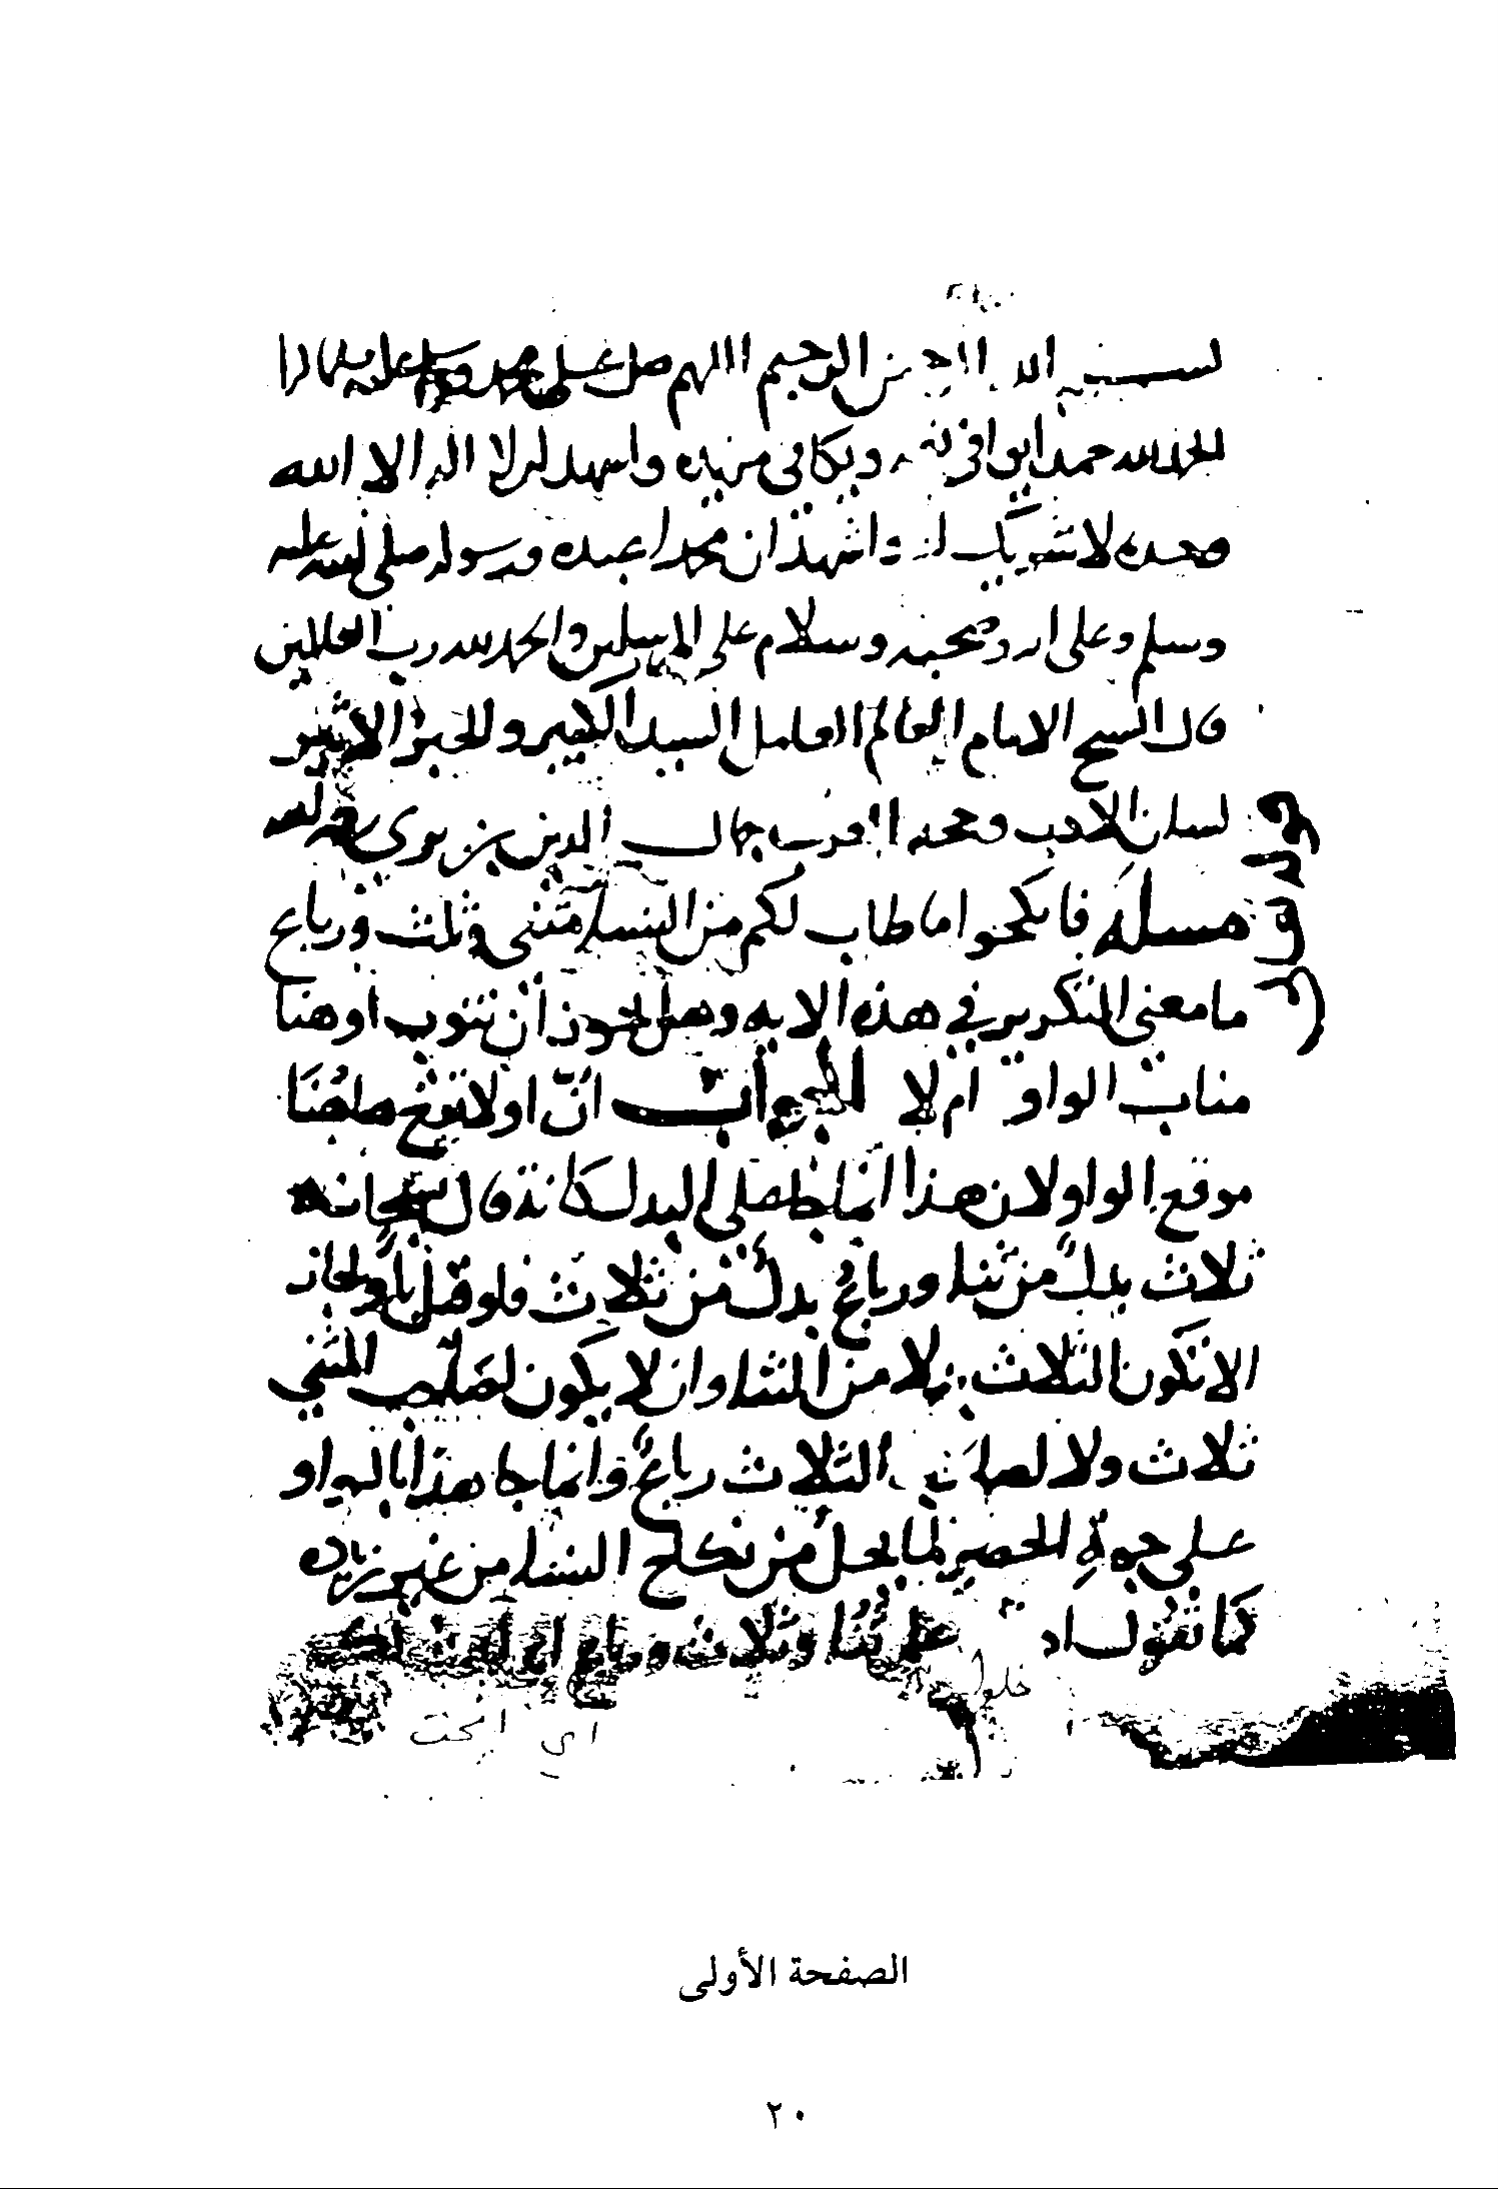 بسم الله الرحمن الرحيم اللهم صل على محمد وسلم عليه
الحمد لله حمدا يوافي نعمه ويكافي مزيده واشهد ان لا اله الا الله
وحده لا شريك له واشهد ان محمدا عبده ورسوله صلى الله عليه
وسلم وعلى اله وصحبه وسلام على المرسلين والحمد لله رب العالمين
قال الشيخ الامام العالم العامل السيد الكبير والحبر الاثير
لسان الادب وحجة العرب جمال الدين بن بري رحمه الله
مسلة فانكحوا ما طاب لكم من النسا مثنى وثلث ورباع
ما معنى التكرير في هذه الايه وهل يجوز ان تنوب او هنا
مناب الواو ام لا الجواب انّ او لا تقع هاهُنَا
موقع الواو لان هذا انما على البدل كانه قال سبحانه
ثلاث بدلً من ثنا ورباعُ بدلٌ من ثلاث فلو قيل باو لجاز
الا تكون الثلاث بدلا من المثنا وان لا يكون لصاحب المثني
ثلاث ولا لصاحب الثلاث رباعً وانما جا هذا بالواو
على جهةِ الحصر لما يحل من نكاح النسا من غير زياده
كما تقول ثُنَا وثلاث ورباع
خلوا
اي انكحت
الصفحة الأولى
٢٠